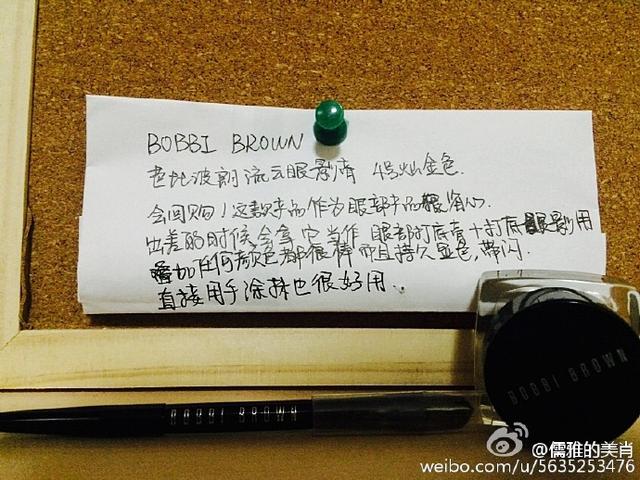 BOBBI BROWN
芭比波朗流云眼影膏 4号灿金色.
会回购!这款产品作为眼部产品很省心
出差的时候会拿它当作眼部打底膏+打底眼影用
叠加任何颜色都很棒而且持久显色,带闪.
直接用手涂抹也很好用..
BOBBI BROWN
BOBBI BROWN
@儒雅的美肖
weibo.com/u/5635253476